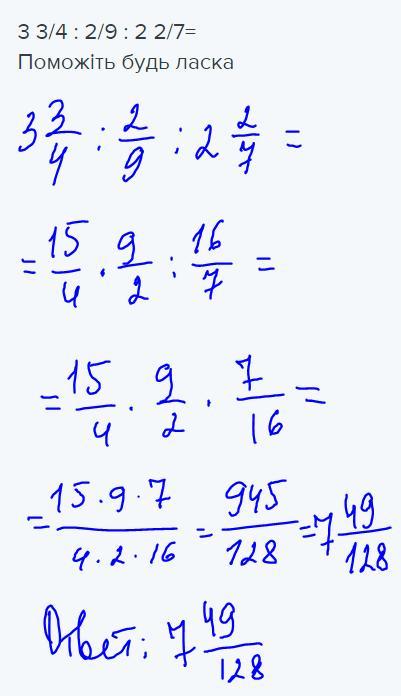 3 3/4 : 2/9 : 2 2/7=
Поможіть будь ласка
3 3/4 : 2/9 : 2 2/7 =
= 15/4 · 9/2 : 16/7 =
= 15/4 · 9/2 · 7/16 =
= 15·9·7/4·2·16 = 945/128 = 7 49/128
Ответ: 7 49/128